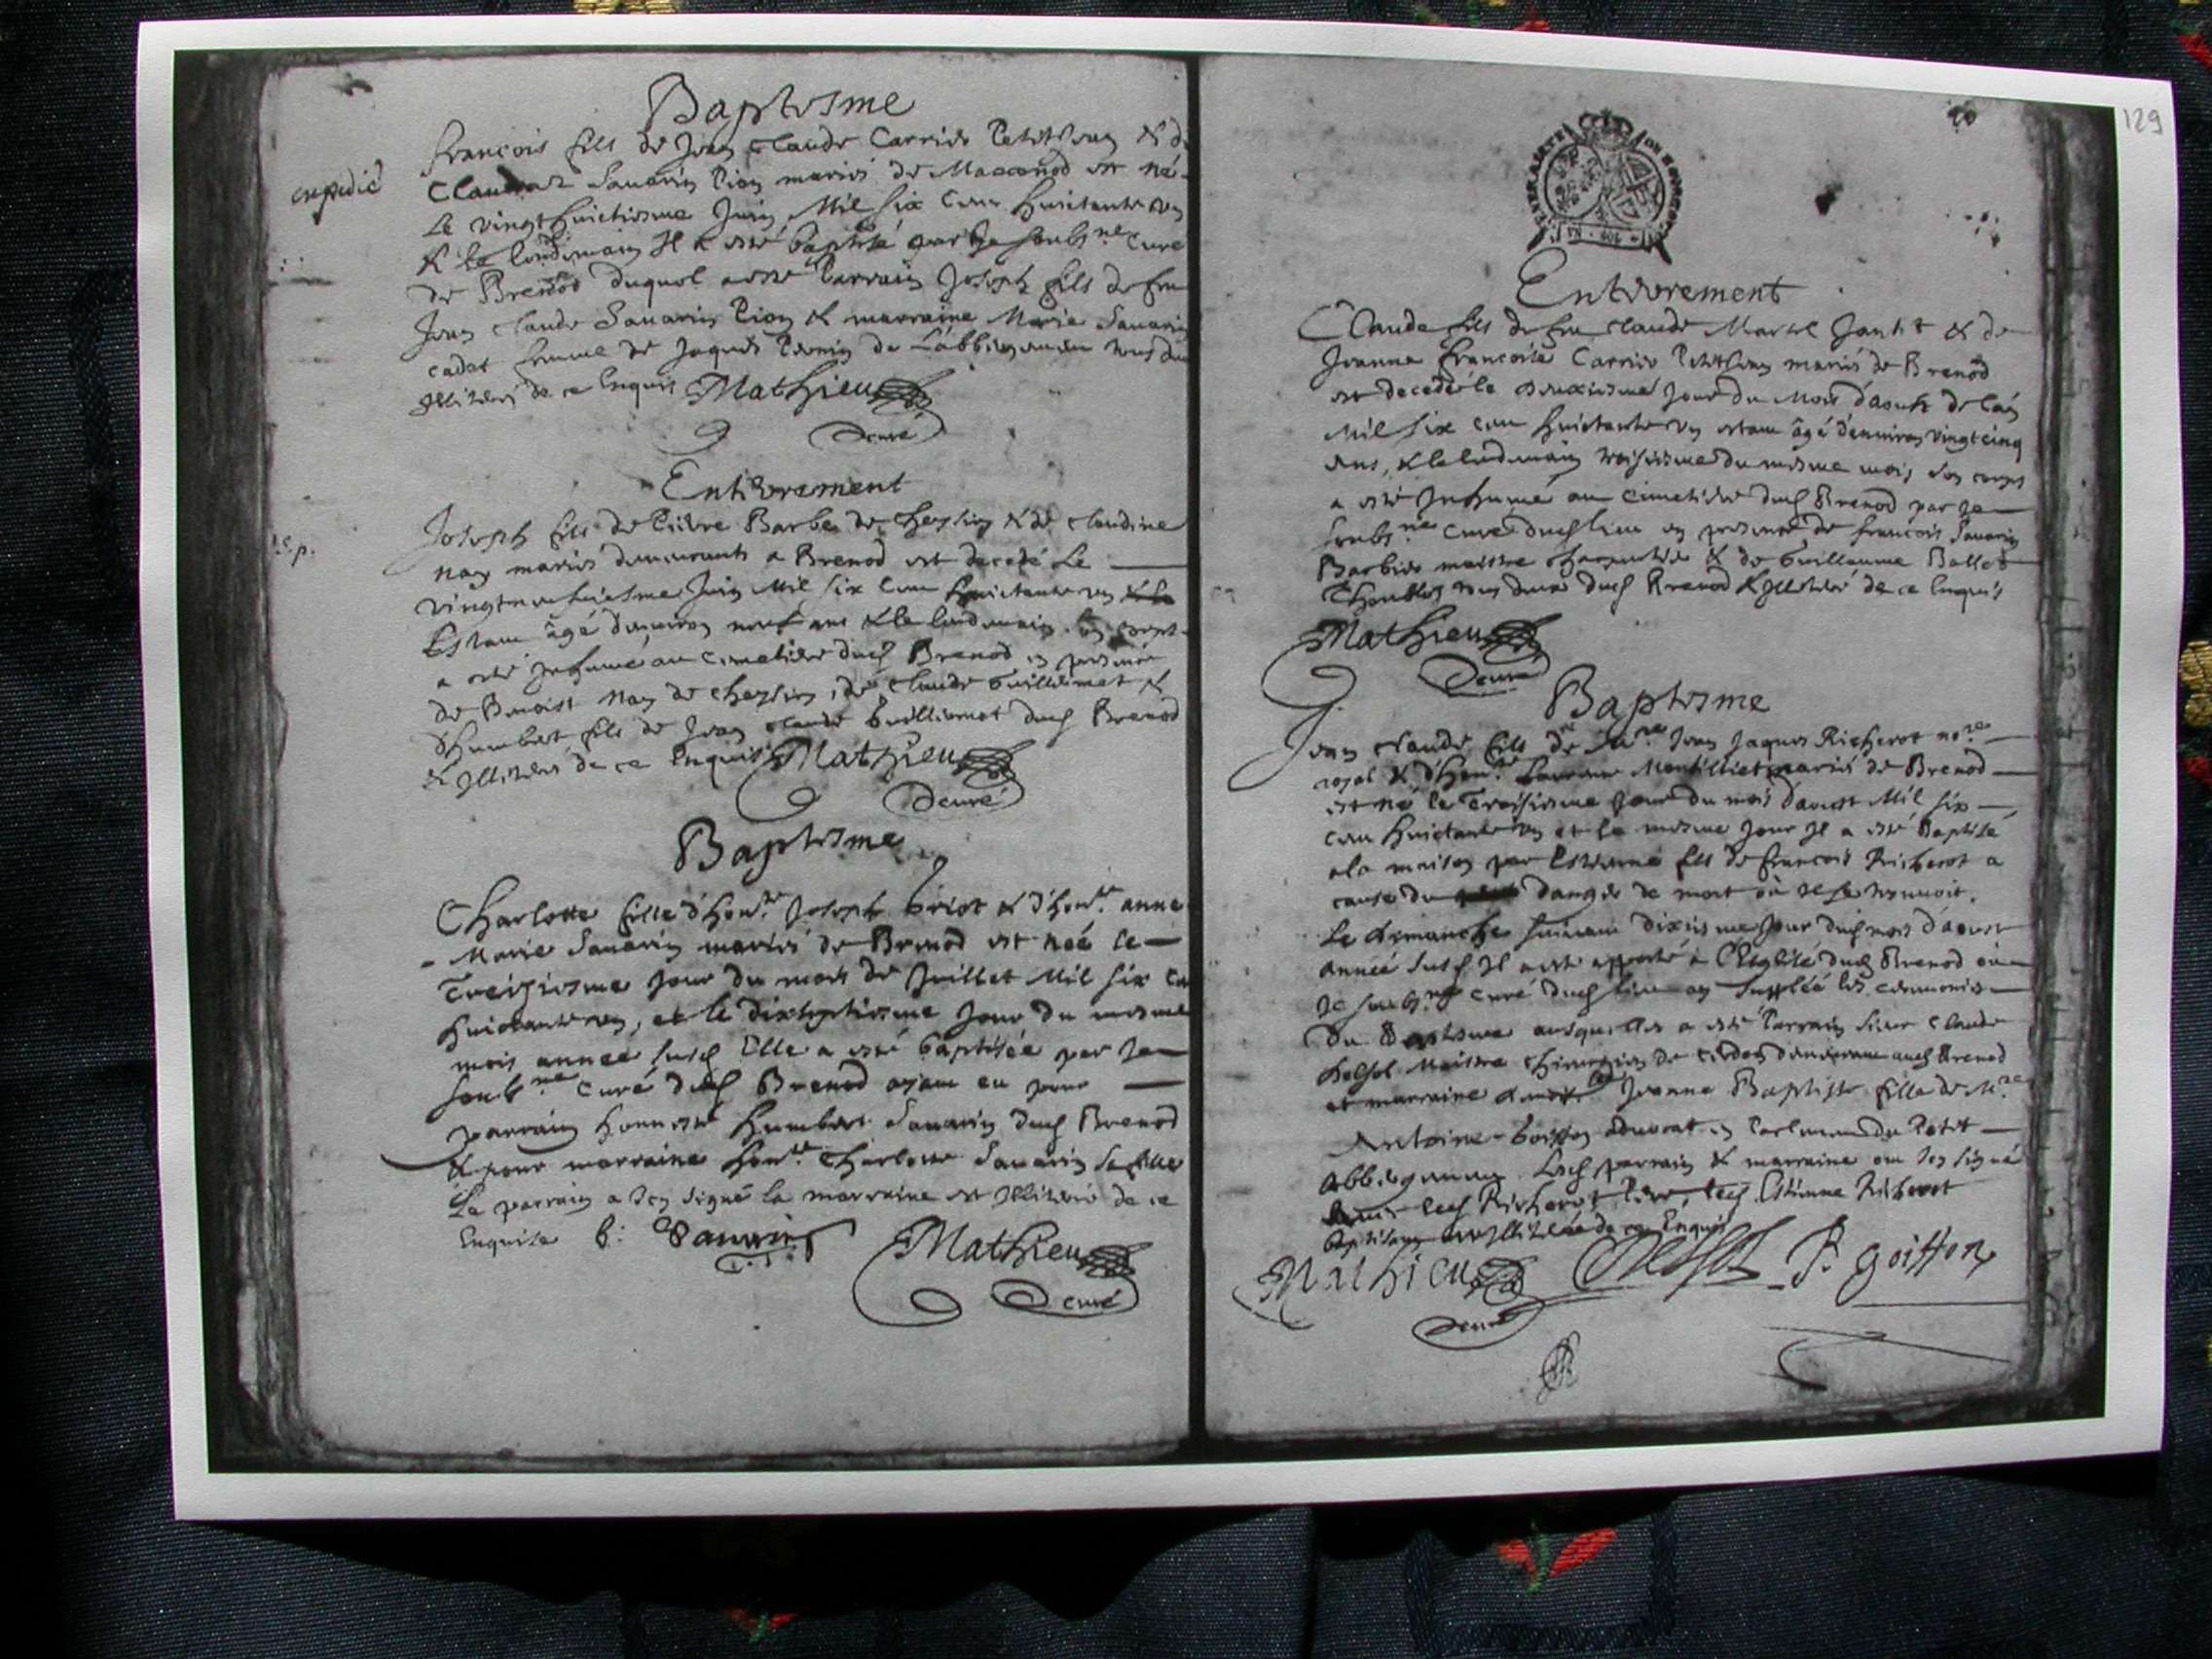 Baptesme
expedié
François fils de Jean Claude Carrier Petitjean & de
Claudaz Savarin Pion mariés de Macconod est né
Le vingthuictiesme Juin Mil six cens huictante un
& le lendemain Il a esté baptisé par Je soubsné Curé
de Brenod duquel a esté Parrain Joseph fils de feu
Jean Claude Savarin Pion & marraine Marie Savarin
cadet femme de Jaques de Labbergement tous deux
Illiterés de ce Enquis Mathieu
Curé
Enterrement
Exp.
Joseph fils de Pierre Barbe de & de Claudine
Nay mariés demeurants a Brenod est decedé Le
vingtneufuiesme Juin Mil six cens huictante un
Estant âgé denviron neuf ans & le lendemain son corps
a esté Inhumé au Cimetiere dud Brenod en presence
de Benoist Nay de , de Claude Guillermet &
d'humbert fils de Jean Claude Guillermet dud Brenod
& Illiterés de ce Enquis Mathieu
Curé
Baptesme
Charlotte fille d'hon.te Joseph Griot & d'hon.te anne
Marie Savarin mariés de Brenod est née le
Treiziesme jour du mois de Juillet Mil six cens
huictante un, et le dixseptiesme jour du mesme
mois année susd Elle a esté baptisée par Je
soubs.né Curé dud Brenod ayant eu pour
parrain honneste humbert Savarin dud Brenod
& pour marraine hon.te Charlotte Savarin sa fille
Le parrain a Icy signé la marraine est Illiterée de ce
Enquise h: Savarin
Mathieu
Curé
129
Enterrement
Claude fils de feu Claude Martel Jantet & de
Jeanne Françoise Carrier Petitjean mariés de Brenod
est decedé le deuxiesme jour du Mois d'aoust de l'an
Mil six cens huictante un estant âgé denviron vingtcinq
ans, & le lendemain troisiesme du mesme mois son corps
a esté Inhumé au Cimetiere dud Brenod par Je
soubs.né Curé dud lieu en presence de françois Savarin
Barbier maistre charpentier & de Guillaume Ballet
tous deux dud Brenod & Illiterés de ce Enquis
Mathieu
Curé
Baptesme
Jean Claude fils de M.re Jean Jaques Richerot no.re
royal & d'hon.te Laurence Montilliet mariés de Brenod
est né le Troisiesme jour du mois d'aoust Mil six
cens huictante un et le mesme jour Il a esté Baptisé
a la maison par Estienne fils de françois Richerot a
cause du danger de mort où Il se trouvoit.
Le dimanche suivant dixiesme jour dud mois d'aoust
année susd Il a esté apporté a l'Esglise dud Brenod où
Je soubs.né Curé dud lieu ay suppléé les ceremonies
du Baptesme ausquelles a esté Parrain sieur Claude
Maistre chirurgien de Cerdon demeurant aud Brenod
et marraine Jeanne Baptiste fille de M.re
Antoine Goiffon advocat en Parlement du Petit
Abbergement. Lesd parrain & marraine ont Icy signé
led Richerot Pere, led Estienne Richerot
Illiteré de ce Enquis
Mathieu
Curé
P. goiffon